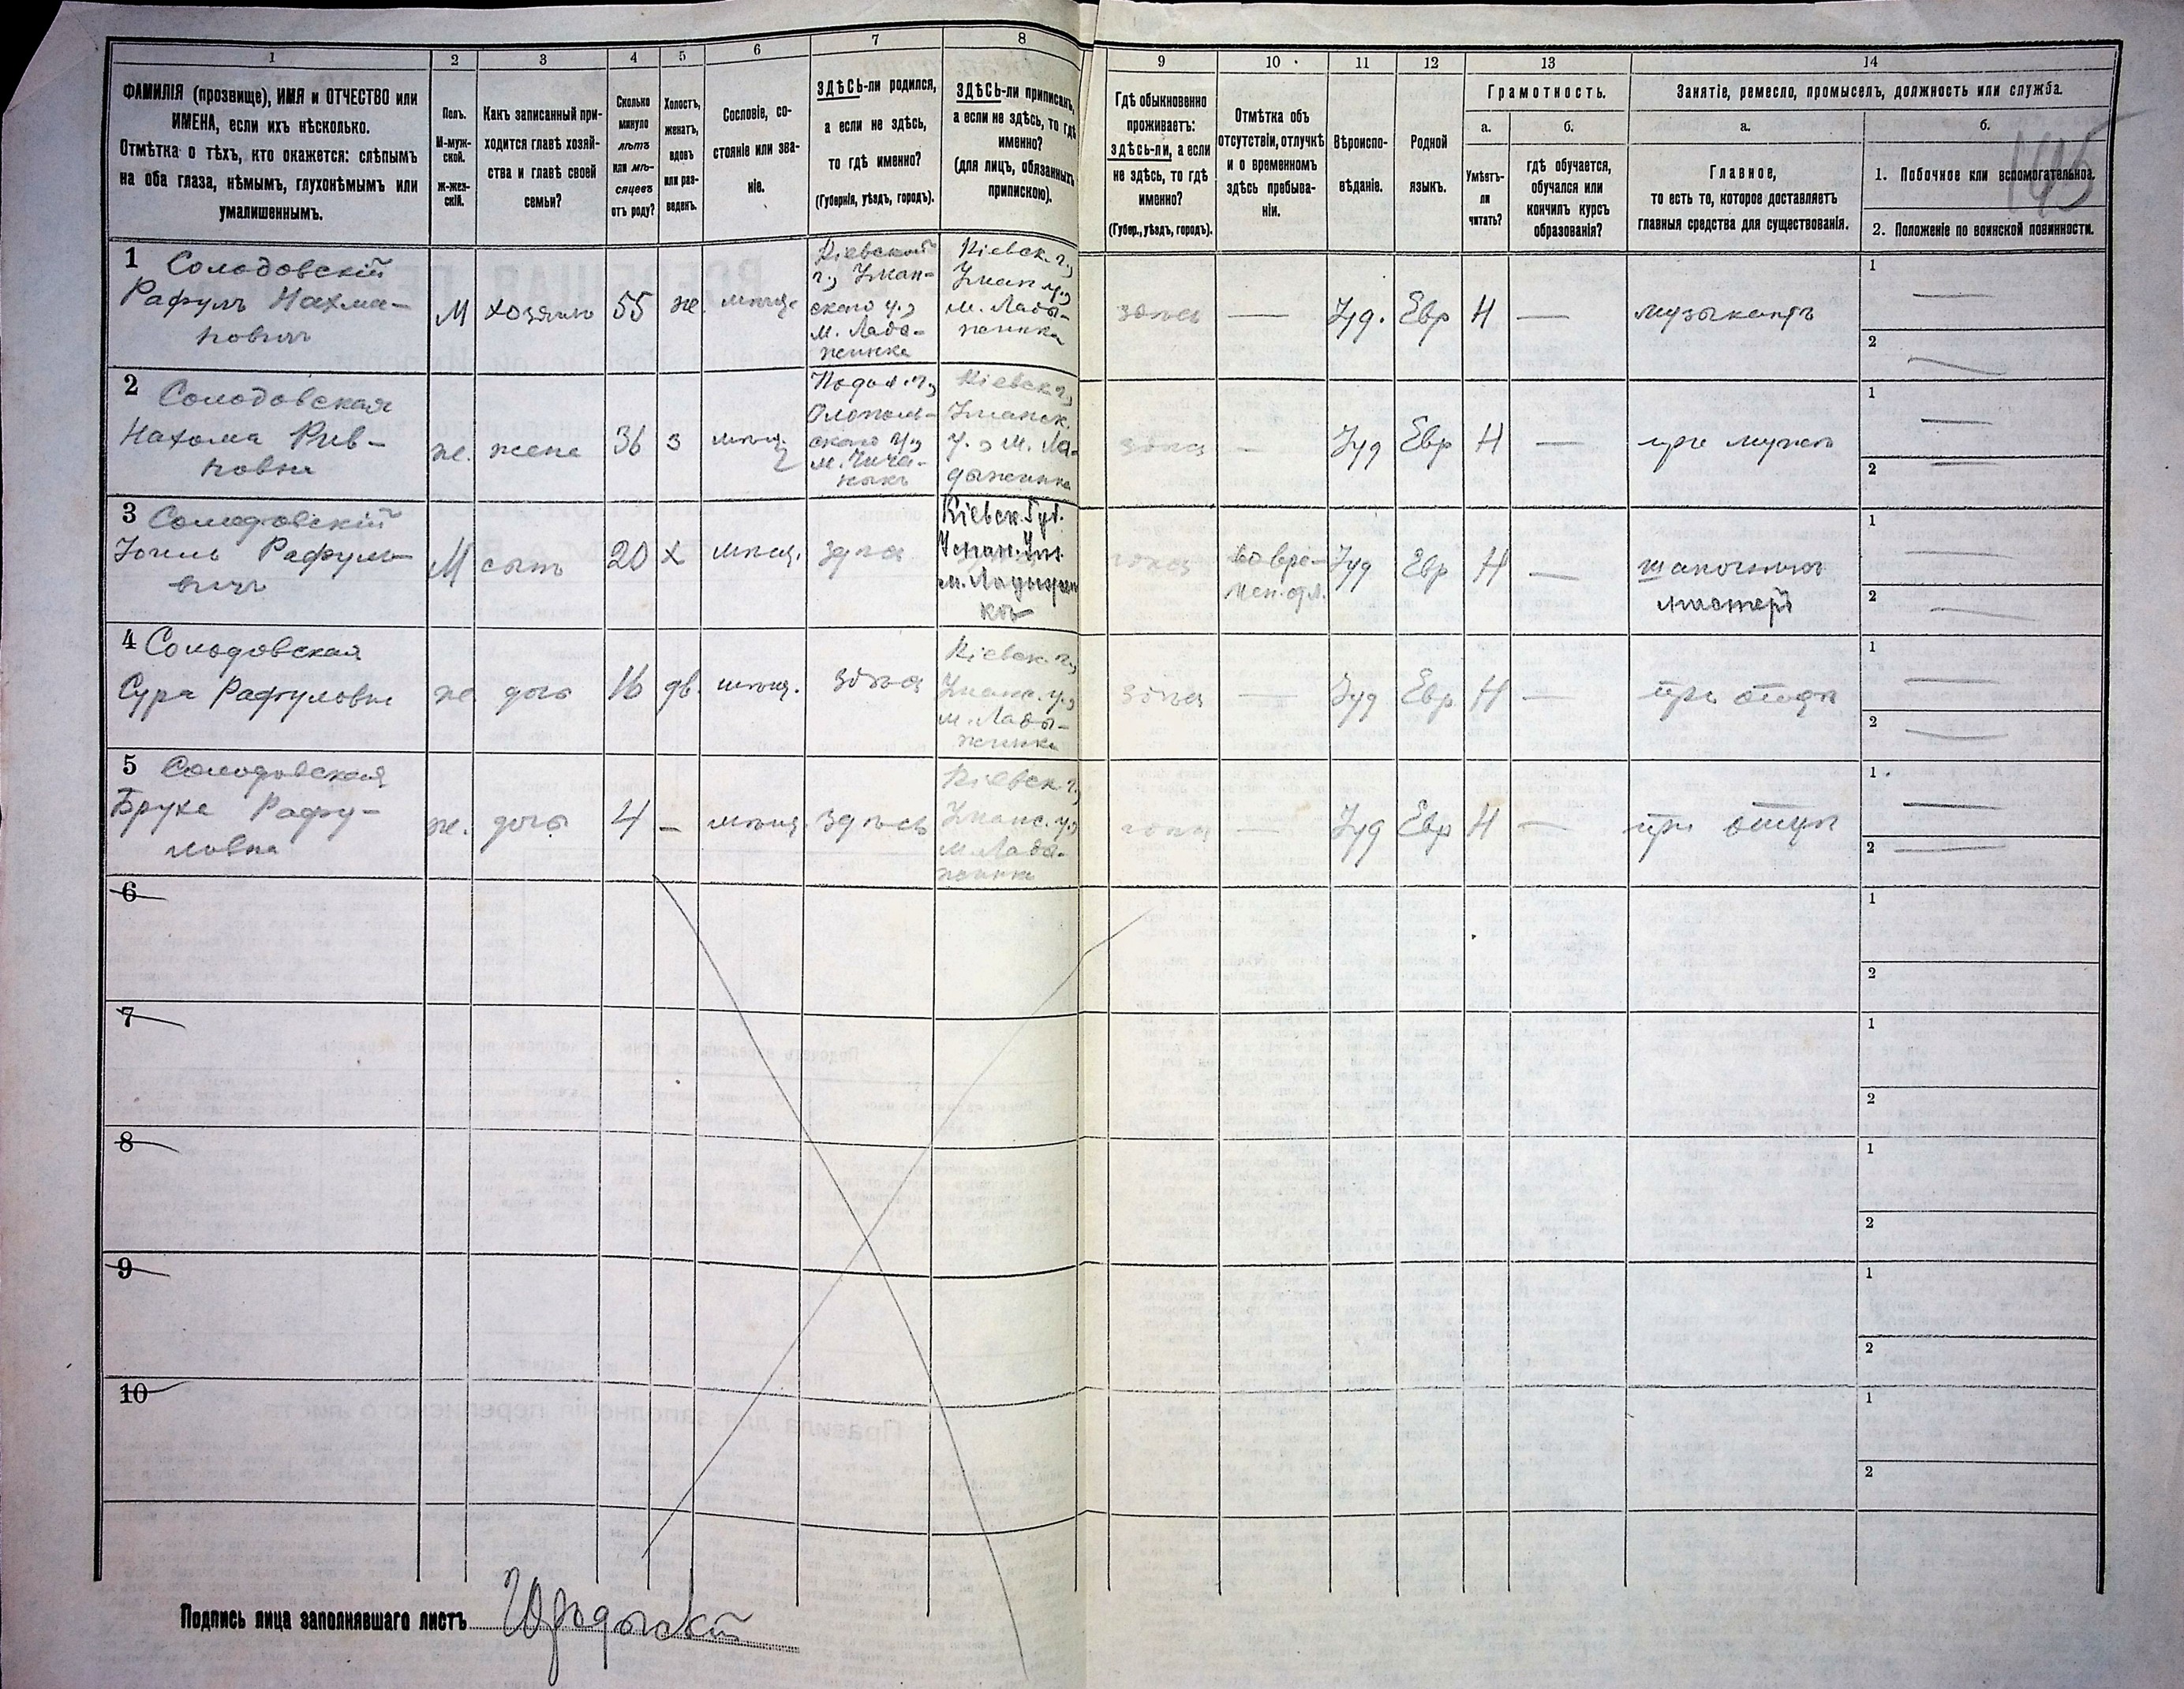 1 2 3 4 5 6 7 8 9 10 11 12 13 14
ФАМИЛІЯ (прозвище), ИМЯ и ОТЧЕСТВО или
ИМЕНА, если ихъ нѣсколько.
Отмѣтка о тѣхъ, кто окажется: слѣпымъ
на оба глаза, нѣмымъ, глухонѣмымъ или
умалишеннымъ.
Полъ.
М-муж-
ской.
ж-жен-
скій.
Какъ записанный при-
ходится главѣ хозяй-
ства и главѣ своей
семьи?
Сколько
минуло
лѣтъ
или мѣ-
сяцевъ
отъ роду?
Холостъ,
женатъ,
вдовъ
или раз-
веденъ.
Сословіе, со-
стояніе или зва-
ніе.
ЗДѢСЬ-ли родился,
а если не здѣсь,
то гдѣ именно?
(Губернія, уѣздъ, городъ).
ЗДѢСЬ-ли приписанъ,
а если не здѣсь, то гдѣ
именно?
(для лицъ, обязанныхъ
припискою).
Гдѣ обыкновенно
проживаетъ:
здѣсь-ли, а если
не здѣсь, то гдѣ
именно?
(Губер., уѣздъ, городъ).
Отмѣтка объ
отсутствіи, отлучкѣ
и о временномъ
здѣсь пребыва-
ніи.
Вѣроиспо-
вѣданіе.
Родной
языкъ.
Грамотность.
а. б.
Умѣетъ-
ли
читать?
гдѣ обучается,
обучался или
кончилъ курсъ
образованія?
Занятіе, ремесло, промыселъ, должность или служба.
а. б.
Главное,
то есть то, которое доставляетъ
главныя средства для существованія.
1. Побочное или вспомогательное.
2. Положеніе по воинской повинности.
1 Солодовскій
Рафулъ Нахма-
новичъ
М хозяинъ 55 же.
Кіевской
г., Уман-
скаго у.,
м. Лады-
жинка
Кіевск. г.,
Уман у.,
м. Лады-
жинка
здѣсь — Іуд. Евр Н — музыкантъ
1 —
2 —
2 Солодовская
Нахома Рив-
новна
же. жена 36 з мѣщ.
Подол. г.,
скаго у.,
Кіевск г.,
Уманск.
у., м. Ла-
дыжинка
здѣсь — Іуд Евр Н — при мужѣ
1 —
2 —
3 Солодовскій
Іоиль Рафуло-
вичъ
М сынъ 20 х мѣщ. здѣсь
Кіевск. Губ.
Уман. Уѣз.
м. Ладыжин
ка
здѣсь
во вре-
мен. отл.
Іуд Евр Н —
шапочный
мастеръ
1 —
2 —
4 Солодовская
Сура Рафуловна
же дочь 16 дв. мѣщ. здѣсь
Кіевск. г.,
Уманс. у.,
м. Лады-
жинка
здѣсь — Іуд Евр Н — при отцѣ
1 —
2 —
5 Солодовская
Бруха Рафу-
ловна
же. дочь 4 — мѣщ. здѣсь
Кіевск г.,
Уманс. у.,
м. Лады-
жинка
здѣсь — Іуд Евр Н — при отцѣ
1 —
2 —
6
1
2
7
1
2
8
1
2
9
1
2
10
1
2
Подпись лица заполнявшаго листъ